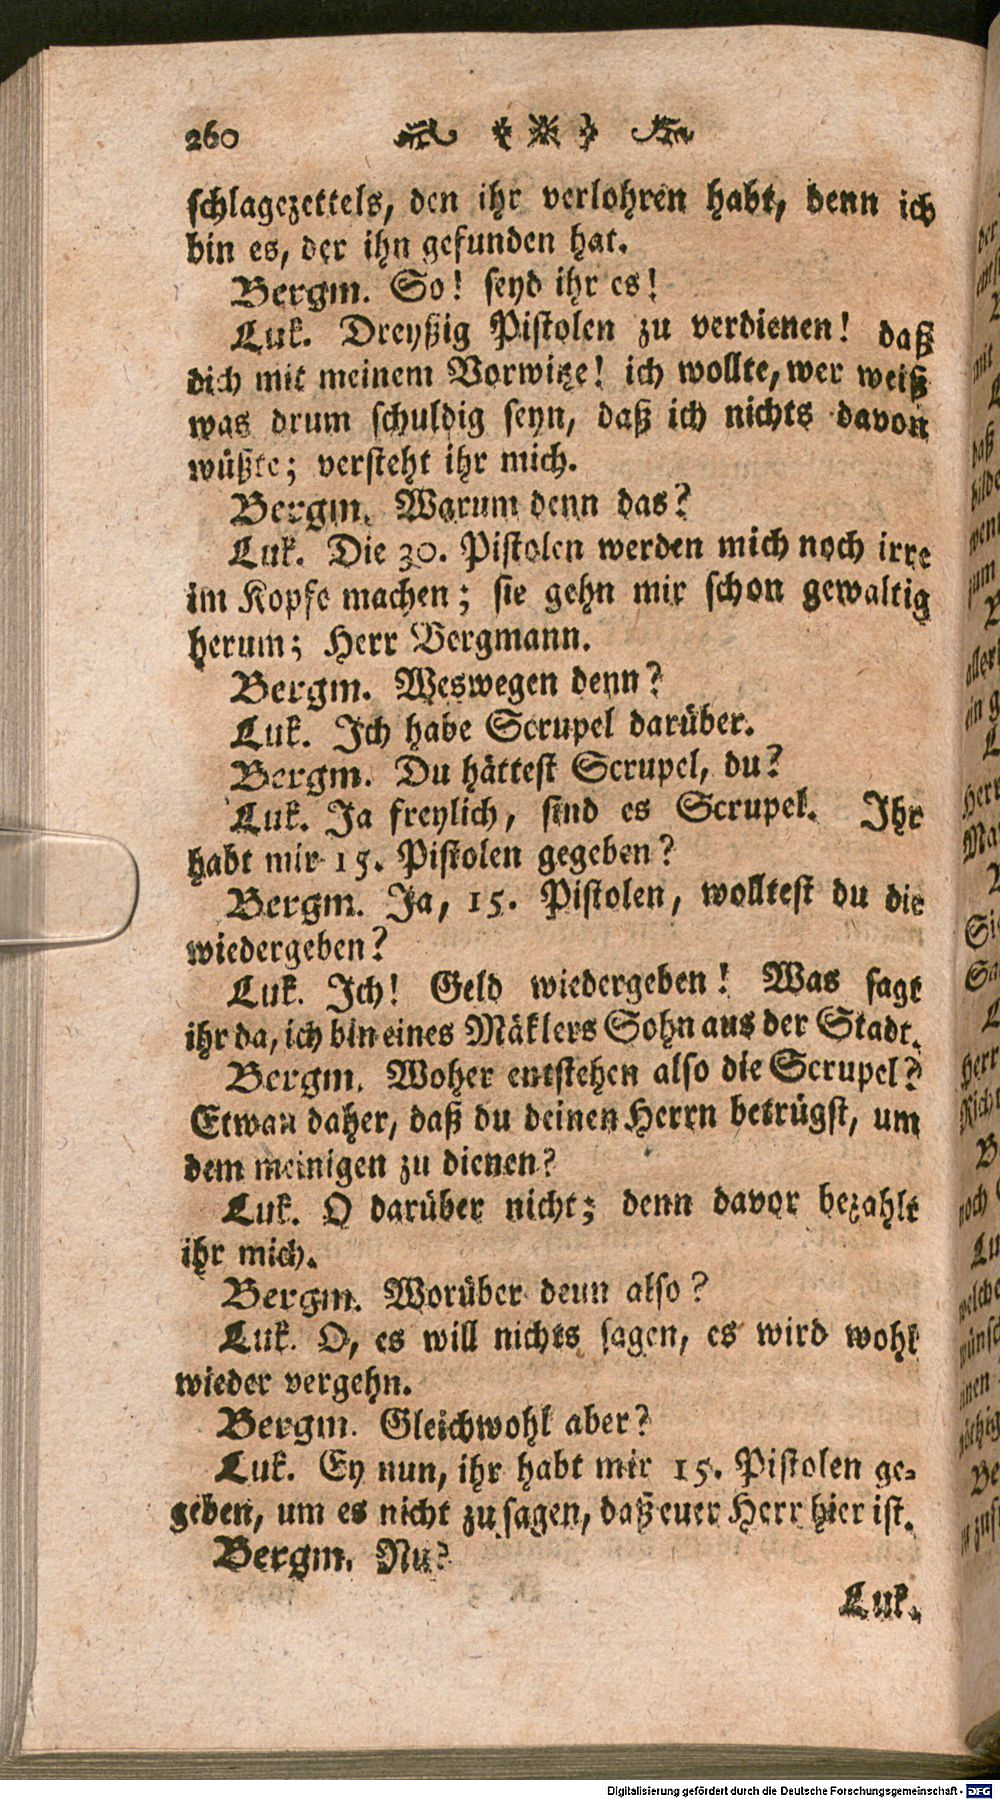 260
schlagezettels, den ihr verlohren habt, denn ich
bin es, der ihn gefunden hat.
Bergm. So! seyd ihr es!
Luk. Dreyßig Pistolen zu verdienen! daß
dich mit meinem Vorwitze! ich wollte, wer weiß
was drum schuldig seyn, daß ich nichts davon
wüßte; versteht ihr mich.
Bergm. Warum denn das?
Luk. Die 30. Pistolen werden mich noch irre
im Kopfe machen; sie gehn mir schon gewaltig
herum; Herr Bergmann.
Bergm. Weswegen denn?
Luk. Ich habe Scrupel darüber.
Bergm. Du hättest Scrupel, du?
Luk. Ja freylich, sind es Scrupel. Ihr
habt mir 15. Pistolen gegeben?
Bergm. Ja, 15. Pistolen, wolltest du die
wiedergeben?
Luk. Ich! Geld wiedergeben! Was sagt
ihr da, ich bin eines Mäklers Sohn aus der Stadt.
Bergm. Woher entstehen also die Scrupel?
Etwan daher, daß du deinen Herrn betrügst, um
dem meinigen zu dienen?
Luk. O darüber nicht; denn davor bezahlt
ihr mich.
Bergm. Worüber denn also?
Luk. O, es will nichts sagen, es wird wohl
wieder vergehn.
Bergm. Gleichwohl aber?
Luk. Ey nun, ihr habt mir 15. Pistolen ge-
geben, um es nicht zu sagen, daß euer Herr hier ist.
Bergm. Nu?
Luk.
Digitalisierung gefördert durch die Deutsche Forschungsgemeinschaft - DFG